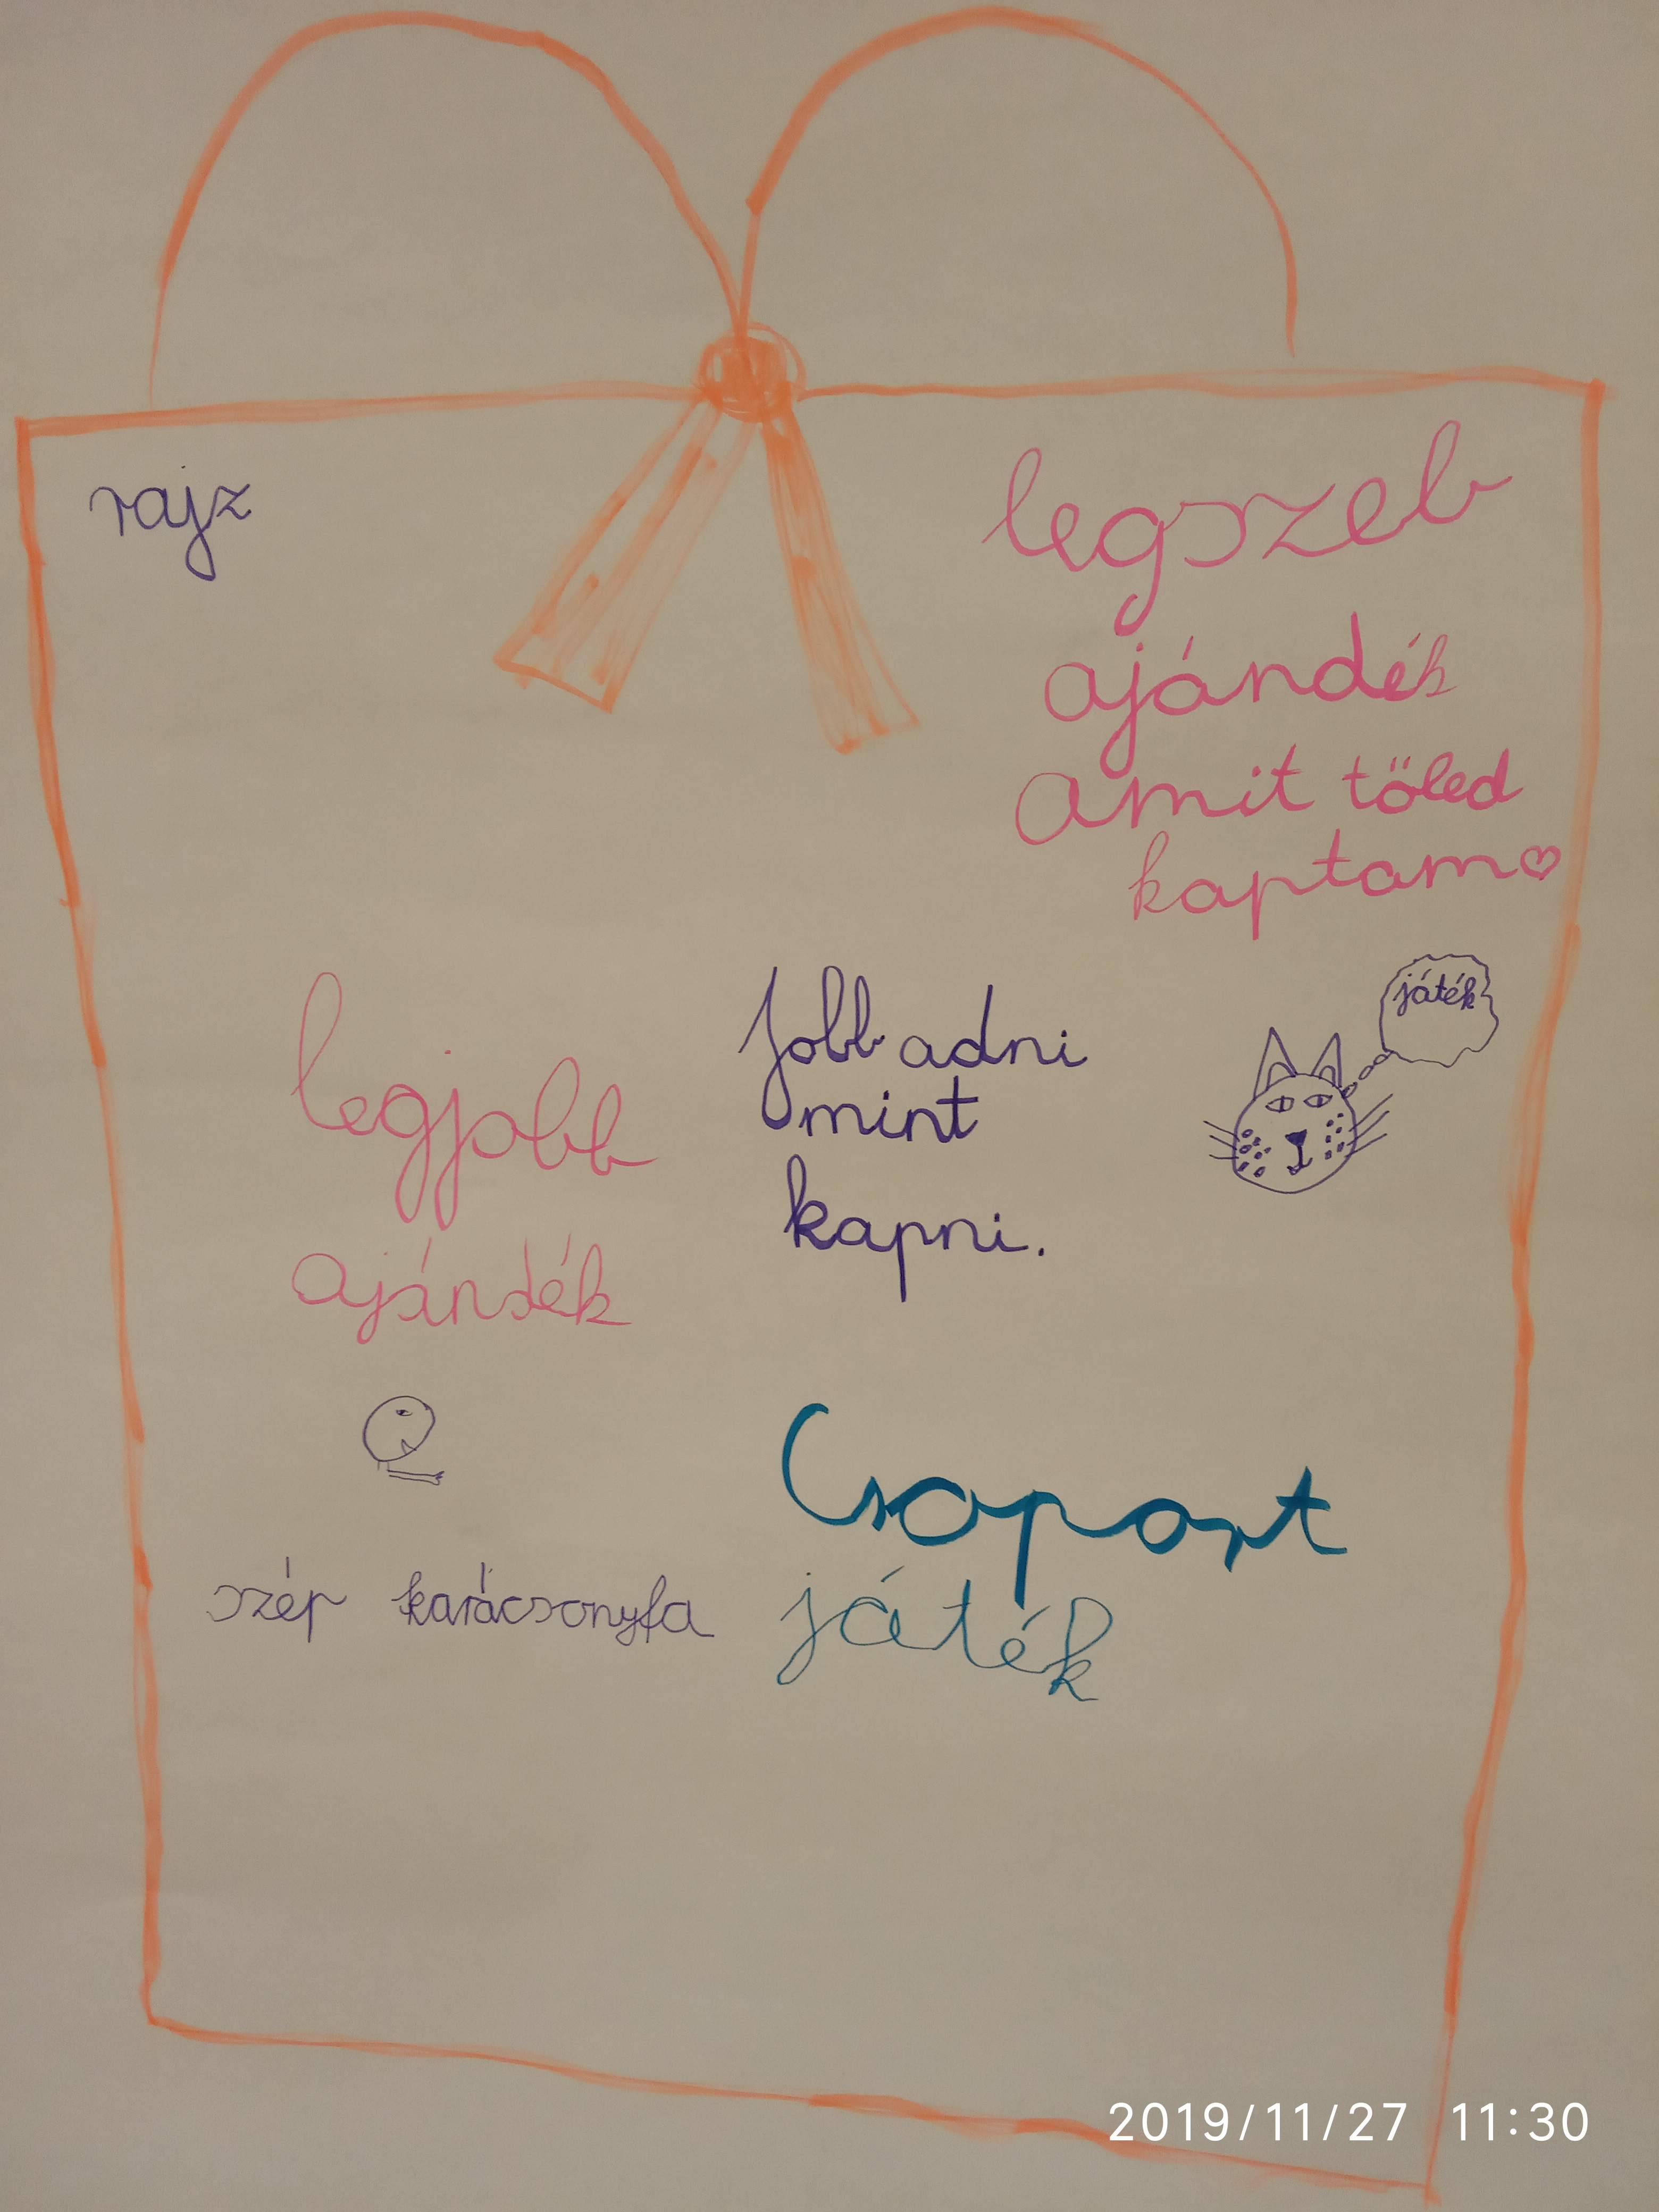 rajz
legszeb
ajándék
amit töled
kaptam
játék
legjobb
ajándék
Jobb adni
mint
kapni.
szép karácsonyfa
Csoport
játék
2019/11/27 11:30